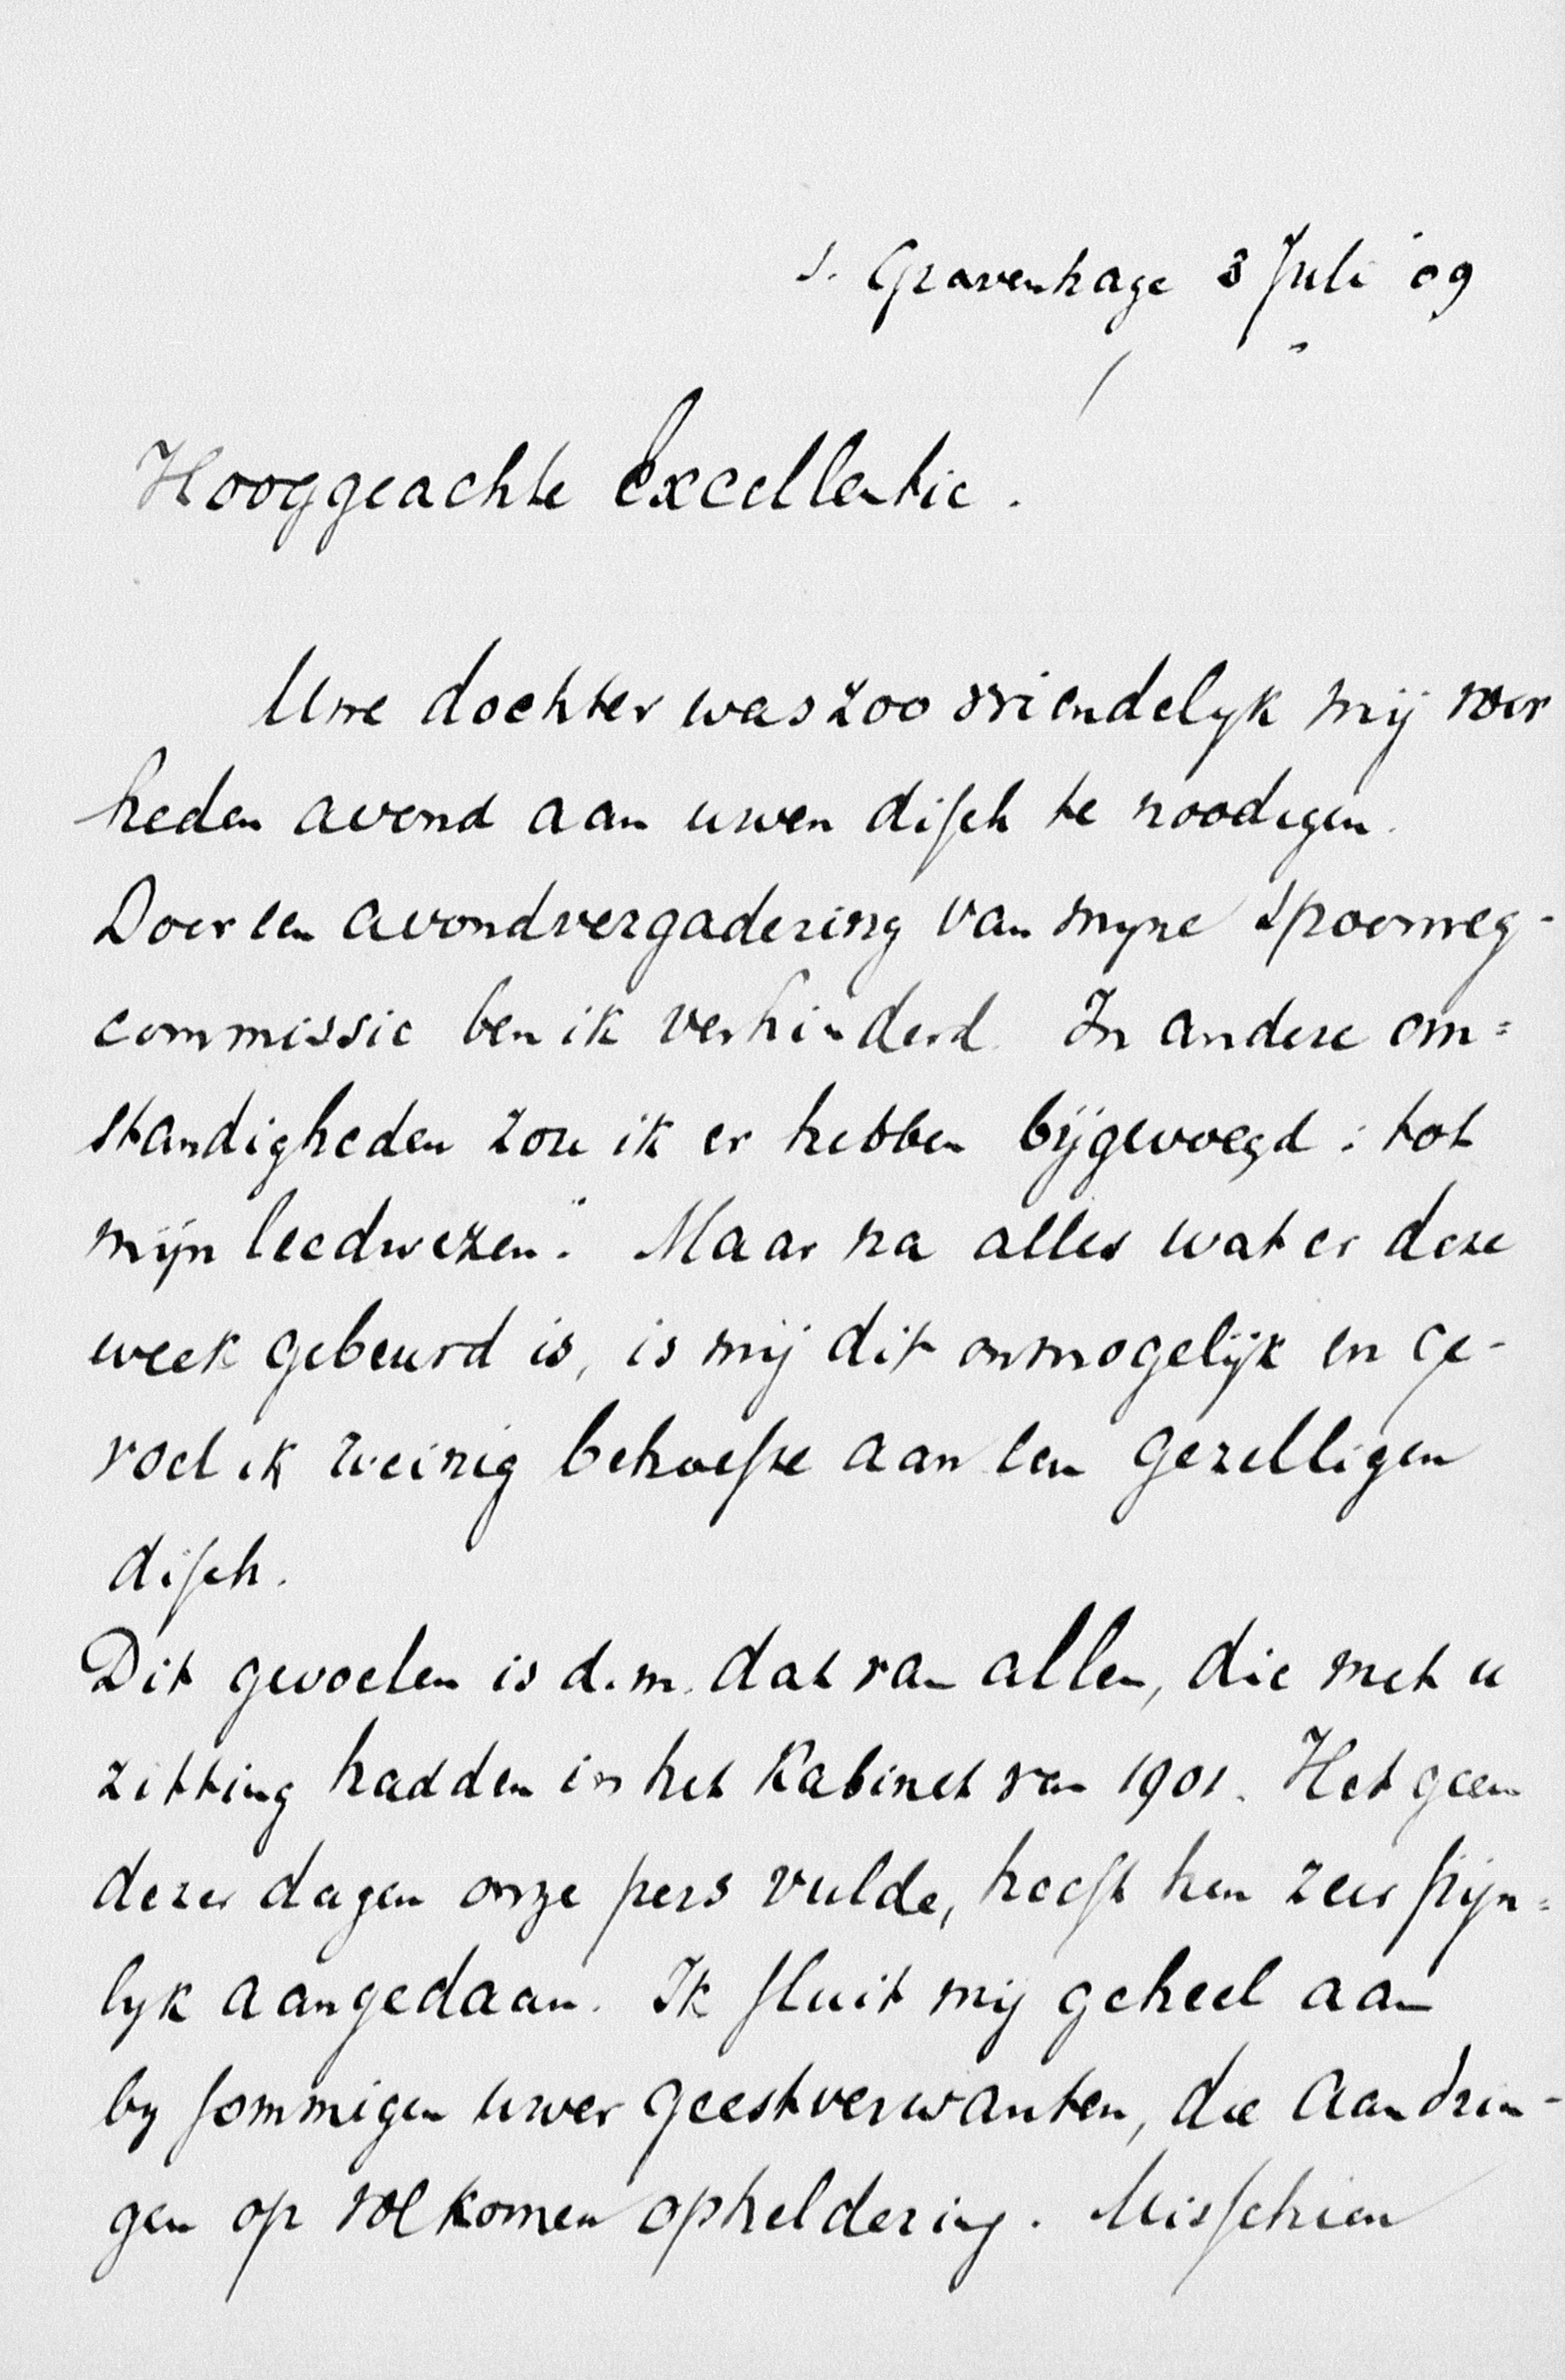 s. Gravenhage 3 Juli '09
Hooggeachte Excellentie.
Uwe dochter was zoo vriendelyk mij voor
heden avond aan uwen disch te noodigen.
Door een avondvergadering van myne Spoorweg-
commissie ben ik verhinderd. In andere om=
standigheden zou ik er hebben bijgevoegd: tot
mijn leedwezen". Maar na alles wat er deze
week gebeurd is, is mij dit onmogelijk en ge-
voel ik weinig behoefte aan een gezelligen
disch.
Dit gevoelen is d.m. dat van allen, die met u
zitting hadden in het Kabinet van 1901. Het geen
dezer dagen onze pers vulde, heeft hen zeer pijn=
lyk aangedaan. Ik sluit mij geheel aan
by sommigen uwer geestverwanten, die aandrin-
gen op volkomen opheldering. Misschien